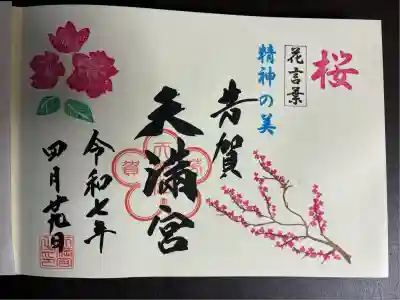 桜
花言葉
精神の美
芳賀
天満宮
令和七年
四月廿九日